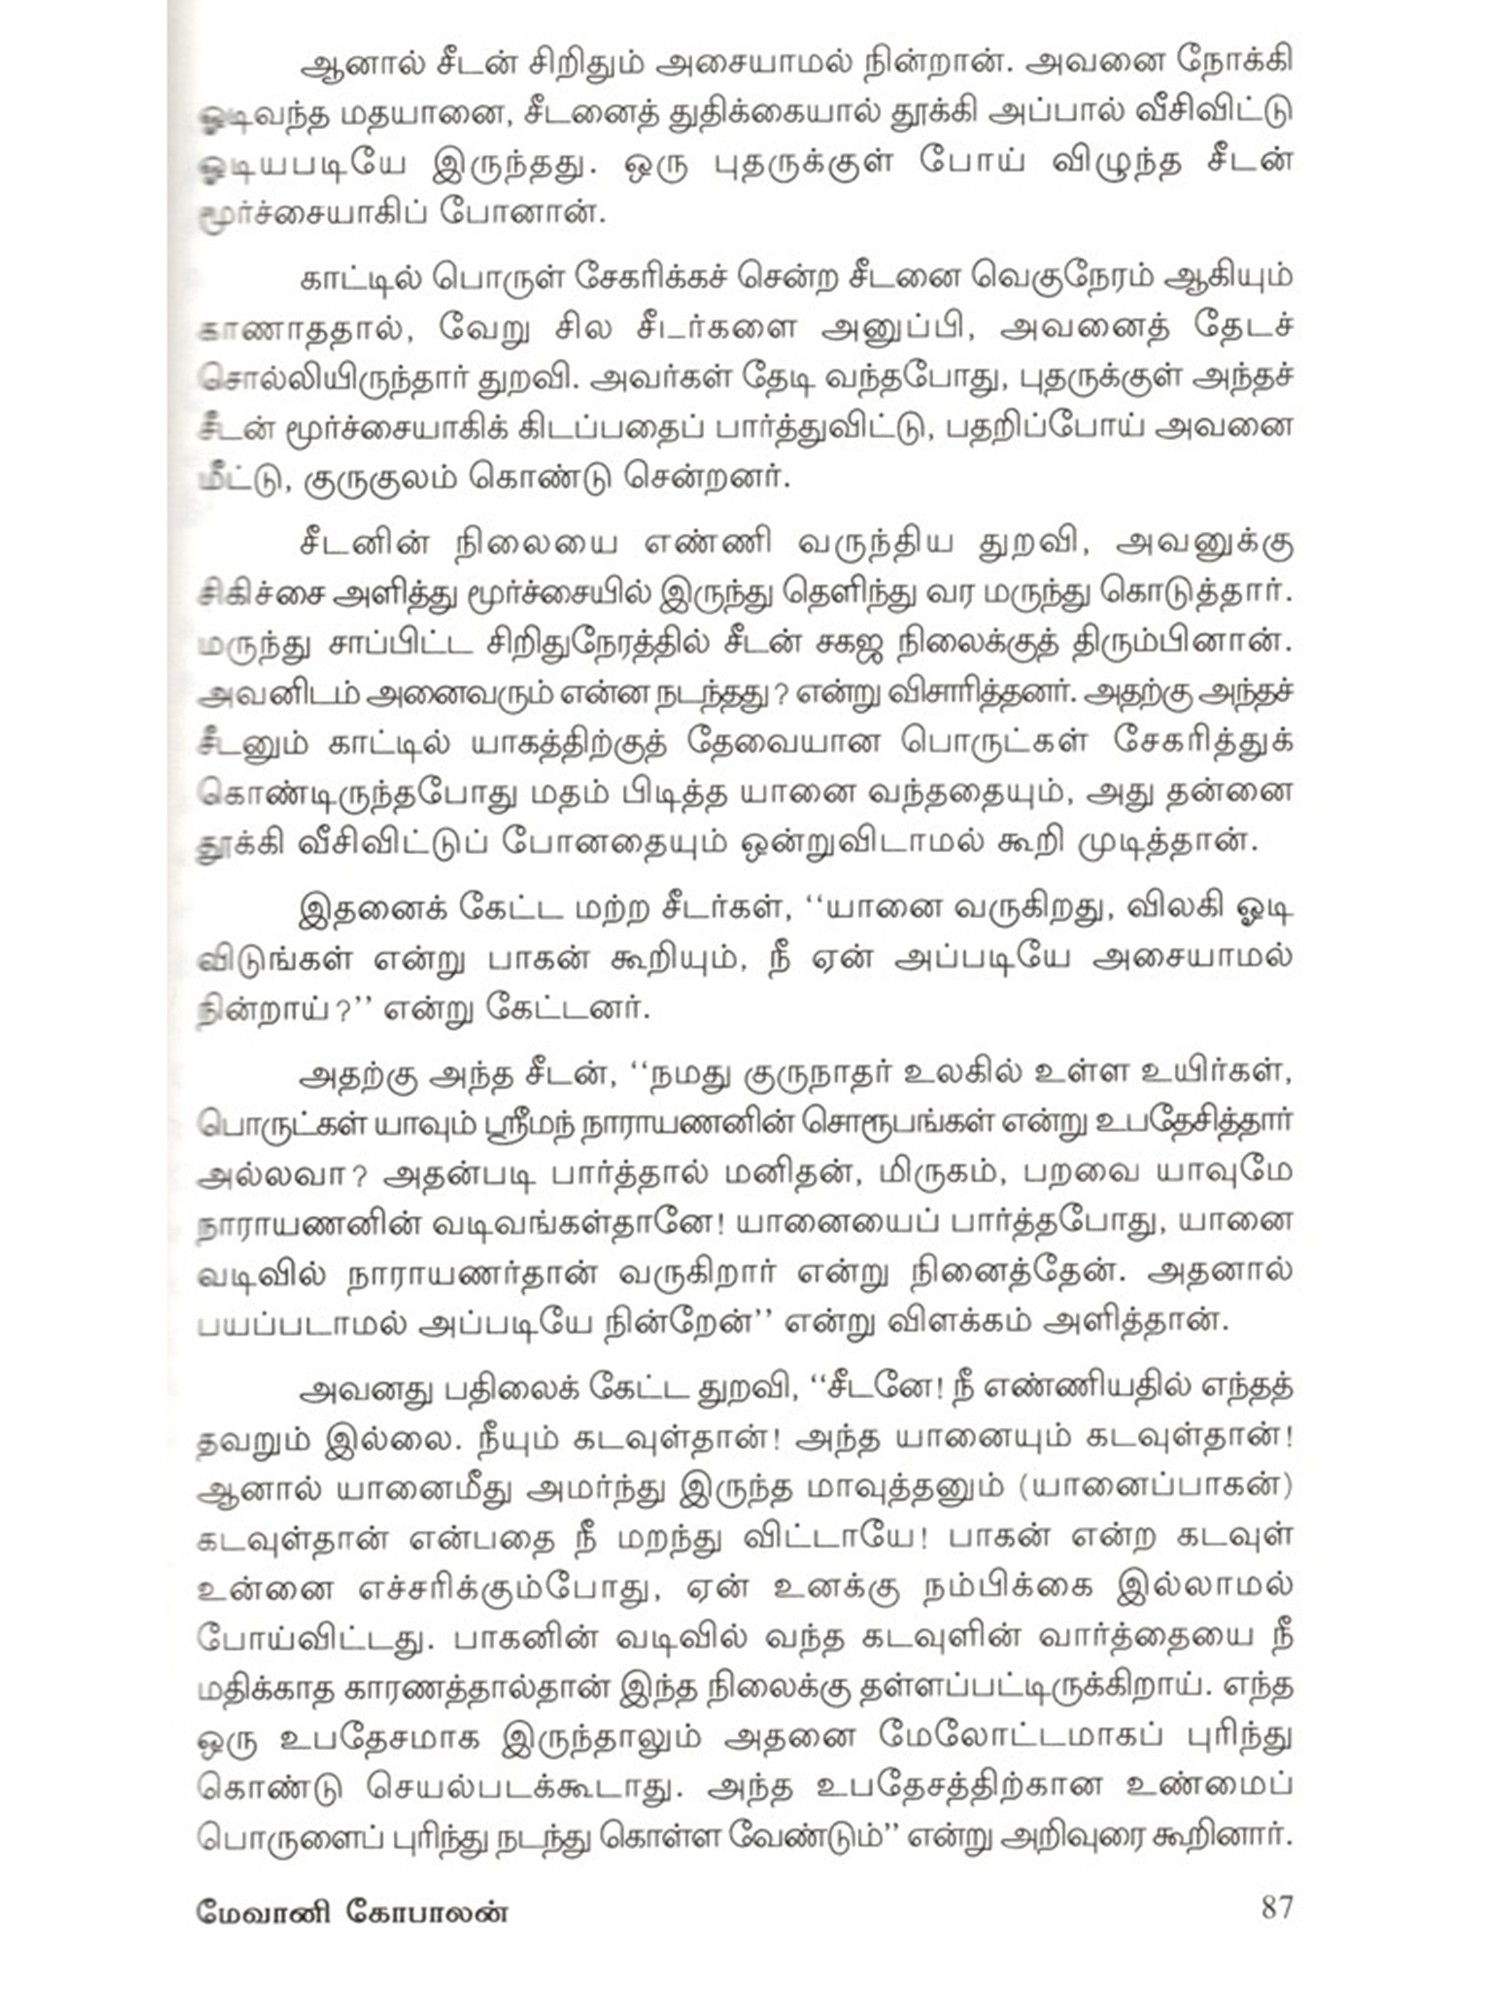 ஆனால் சீடன் சிறிதும் அசையாமல் நின்றான். அவனை நோக்கி
ஓடிவந்த மதயானை, சீடனைத் துதிக்கையால் தூக்கி அப்பால் வீசிவிட்டு
ஓடியபடியே இருந்தது. ஒரு புதருக்குள் போய் விழுந்த சீடன்
மூர்ச்சையாகிப் போனான்.
காட்டில் பொருள் சேகரிக்கச் சென்ற சீடனை வெகுநேரம் ஆகியும்
காணாததால், வேறு சில சீடர்களை அனுப்பி, அவனைத் தேடச்
சொல்லியிருந்தார் துறவி. அவர்கள் தேடி வந்தபோது, புதருக்குள் அந்தச்
சீடன் மூர்ச்சையாகிக் கிடப்பதைப் பார்த்துவிட்டு, பதறிப்போய் அவனை
மீட்டு, குருகுலம் கொண்டு சென்றனர்.
சீடனின் நிலையை எண்ணி வருந்திய துறவி, அவனுக்கு
சிகிச்சை அளித்து மூர்ச்சையில் இருந்து தெளிந்து வர மருந்து கொடுத்தார்.
மருந்து சாப்பிட்ட சிறிதுநேரத்தில் சீடன் சகஜ நிலைக்குத் திரும்பினான்.
அவனிடம் அனைவரும் என்ன நடந்தது? என்று விசாரித்தனர். அதற்கு அந்தச்
சீடனும் காட்டில் யாகத்திற்குத் தேவையான பொருட்கள் சேகரித்துக்
கொண்டிருந்தபோது மதம் பிடித்த யானை வந்ததையும், அது தன்னை
தூக்கி வீசிவிட்டுப் போனதையும் ஒன்றுவிடாமல் கூறி முடித்தான்.
இதனைக் கேட்ட மற்ற சீடர்கள், ‘‘யானை வருகிறது, விலகி ஓடி
விடுங்கள் என்று பாகன் கூறியும், நீ ஏன் அப்படியே அசையாமல்
நின்றாய்?’’ என்று கேட்டனர்.
அதற்கு அந்த சீடன், ‘‘நமது குருநாதர் உலகில் உள்ள உயிர்கள்,
பொருட்கள் யாவும் ஸ்ரீமந் நாராயணனின் சொரூபங்கள் என்று உபதேசித்தார்
அல்லவா? அதன்படி பார்த்தால் மனிதன், மிருகம், பறவை யாவுமே
நாராயணனின் வடிவங்கள்தானே! யானையைப் பார்த்தபோது, யானை
வடிவில் நாராயணர்தான் வருகிறார் என்று நினைத்தேன். அதனால்
பயப்படாமல் அப்படியே நின்றேன்’’ என்று விளக்கம் அளித்தான்.
அவனது பதிலைக் கேட்ட துறவி, ‘‘சீடனே! நீ எண்ணியதில் எந்தத்
தவறும் இல்லை. நீயும் கடவுள்தான்! அந்த யானையும் கடவுள்தான்!
ஆனால் யானைமீது அமர்ந்து இருந்த மாவுத்தனும் (யானைப்பாகன்)
கடவுள்தான் என்பதை நீ மறந்து விட்டாயே! பாகன் என்ற கடவுள்
உன்னை எச்சரிக்கும்போது, ஏன் உனக்கு நம்பிக்கை இல்லாமல்
போய்விட்டது. பாகனின் வடிவில் வந்த கடவுளின் வார்த்தையை நீ
மதிக்காத காரணத்தால்தான் இந்த நிலைக்கு தள்ளப்பட்டிருக்கிறாய். எந்த
ஒரு உபதேசமாக இருந்தாலும் அதனை மேலோட்டமாகப் புரிந்து
கொண்டு செயல்படக்கூடாது. அந்த உபதேசத்திற்கான உண்மைப்
பொருளைப் புரிந்து நடந்து கொள்ள வேண்டும்’’ என்று அறிவுரை கூறினார்.
மேவானி கோபாலன் 87